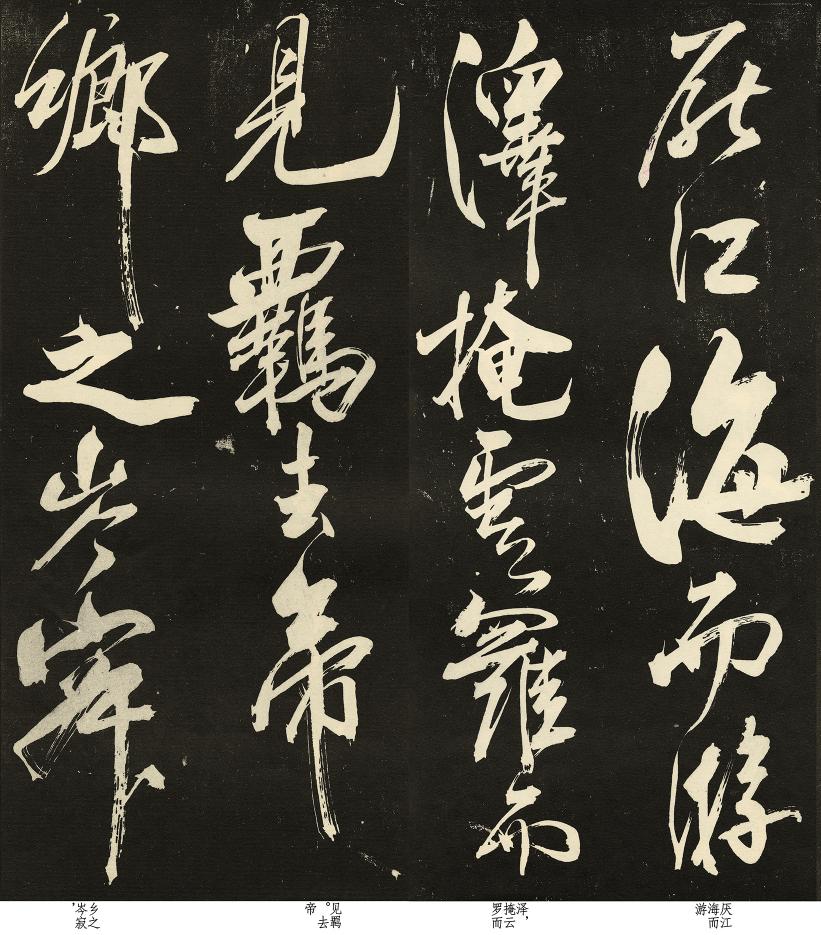 厭江海而游
澤掩雲羅而
見羈去帝
鄉之岑寂
厌江
海而
游
泽，
掩云
罗而
见羁
。去
帝
乡之
岑寂
，